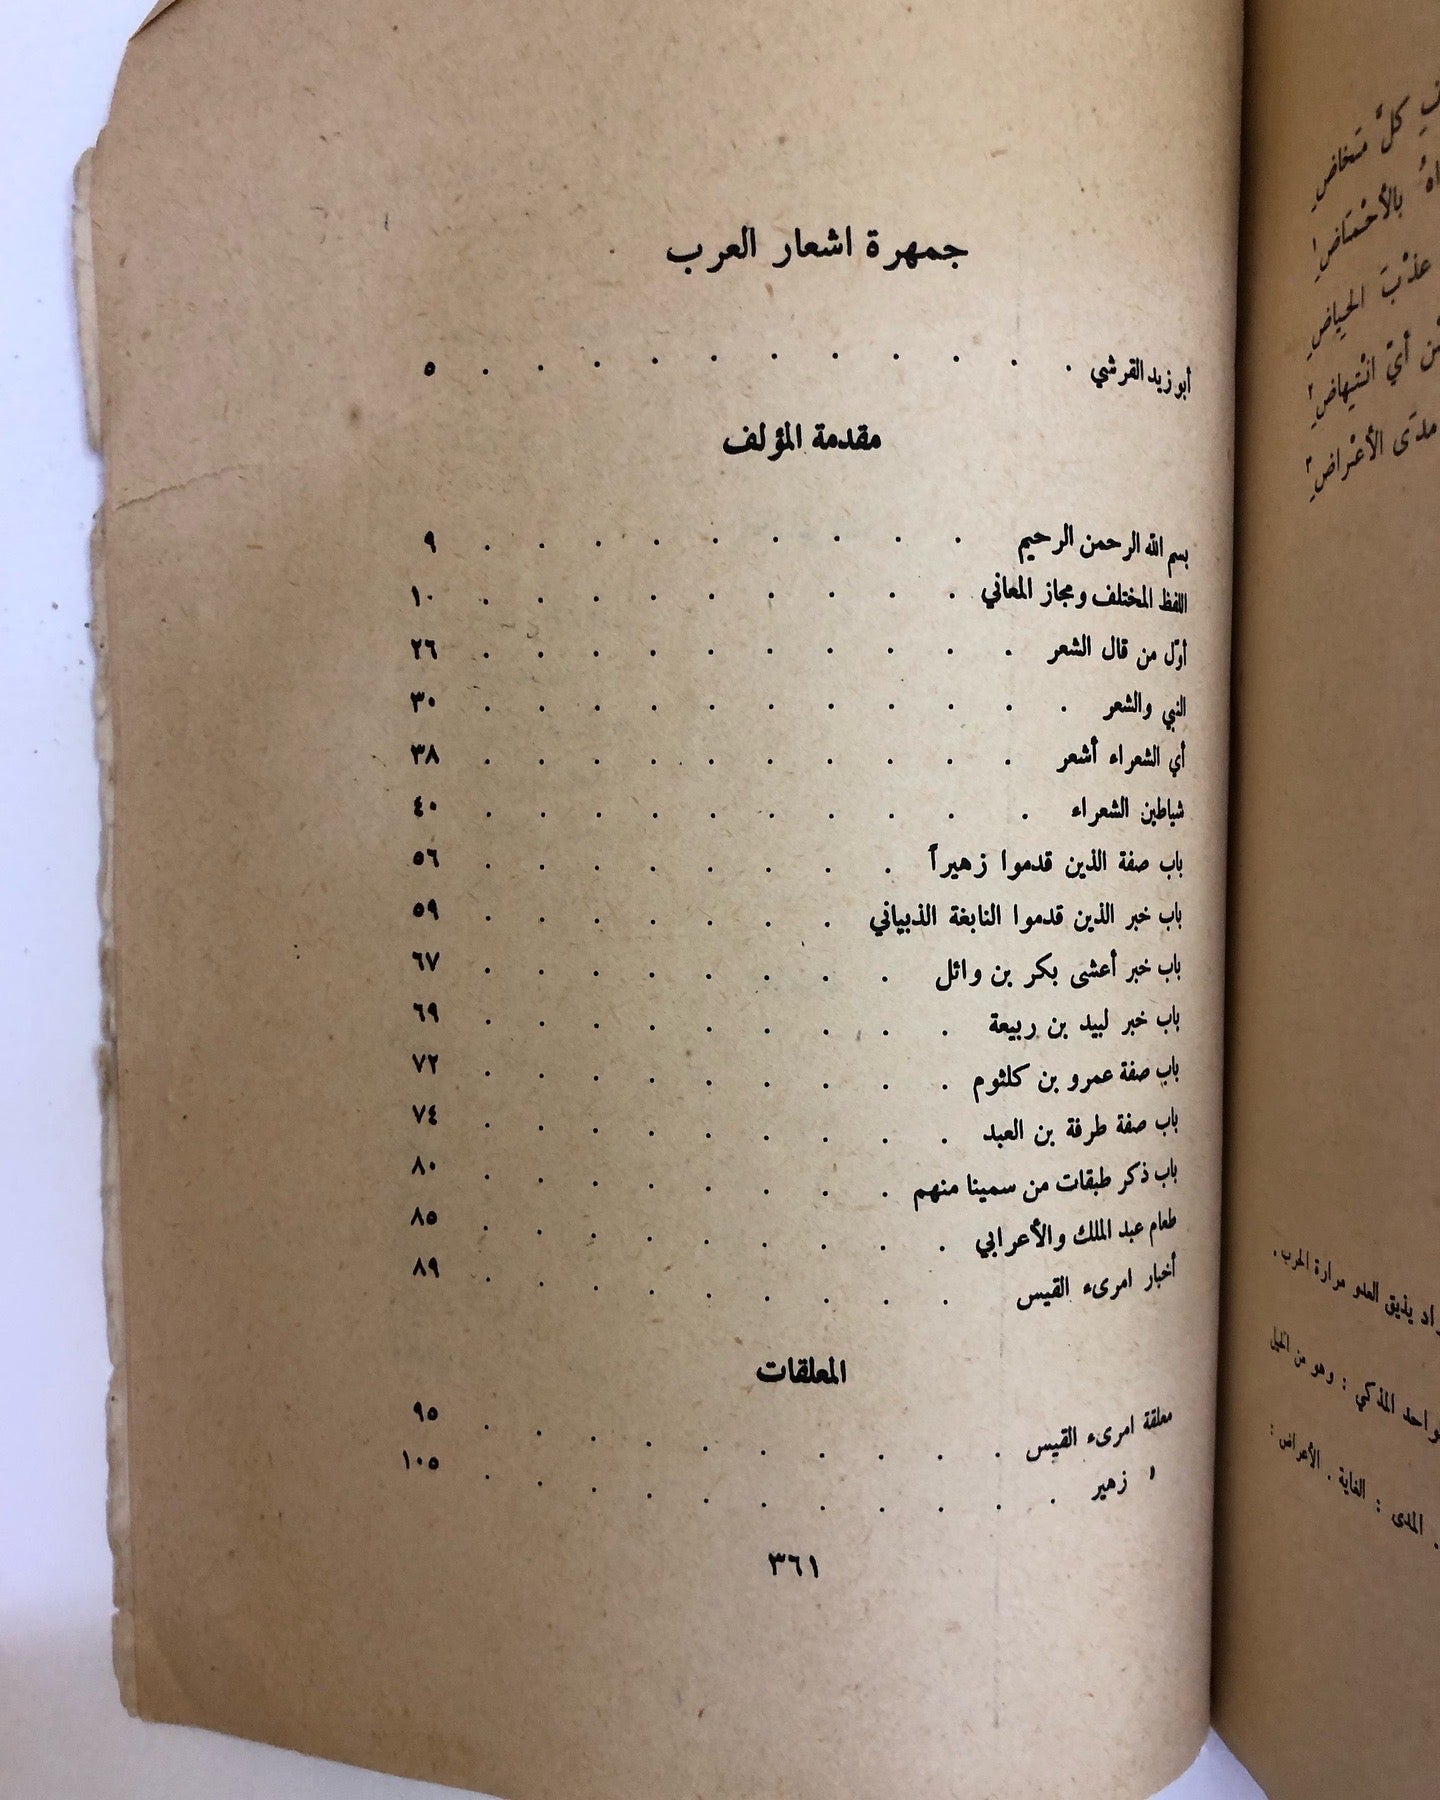 جمهرة اشعار العرب
أبو زيد القرشي . . . . . . . . . . . ٥
مقدمة المؤلف
بسم الله الرحمن الرحيم . . . . . . . . . ٩
اللفظ المختلف ومجاز المعاني . . . . . . . . . ١٠
أوّل من قال الشعر . . . . . . . . . . ٢٦
النبي والشعر . . . . . . . . . . . ٣٠
أي الشعراء أشعر . . . . . . . . . . ٣٨
شياطين الشعراء . . . . . . . . . . ٤٠
باب صفة الذين قدموا زهيراً . . . . . . . . ٥٦
باب خبر الذين قدموا النابغة الذبياني . . . . . . . ٥٩
باب خبر أعشى بكر بن وائل . . . . . . . . ٦٧
باب خبر لبيد بن ربيعة . . . . . . . . . ٦٩
باب صفة عمرو بن كلثوم . . . . . . . . . ٧٢
باب صفة طرفة بن العبد . . . . . . . . . ٧٤
باب ذكر طبقات من سمينا منهم . . . . . . . . ٨٠
طعام عبد الملك والأعرابي . . . . . . . . . ٨٥
أخبار امرىء القيس . . . . . . . . . ٨٩
المعلقات
معلقة امرىء القيس . . . . . . . . . . ٩٥
' زهير . . . . . . . . . . . ١٠٥
٣٦١
كلّ مَخاضِ
بالأحْمَاضِ١
عذْبَ الحياضِ
أيّ انْتِهاضِ٢
مدَى الأعْراضِ٣
يذيق العدو مرارة الحرب .
المذكي : وهو من الخيل
. المدى : الغاية . الأعراض :